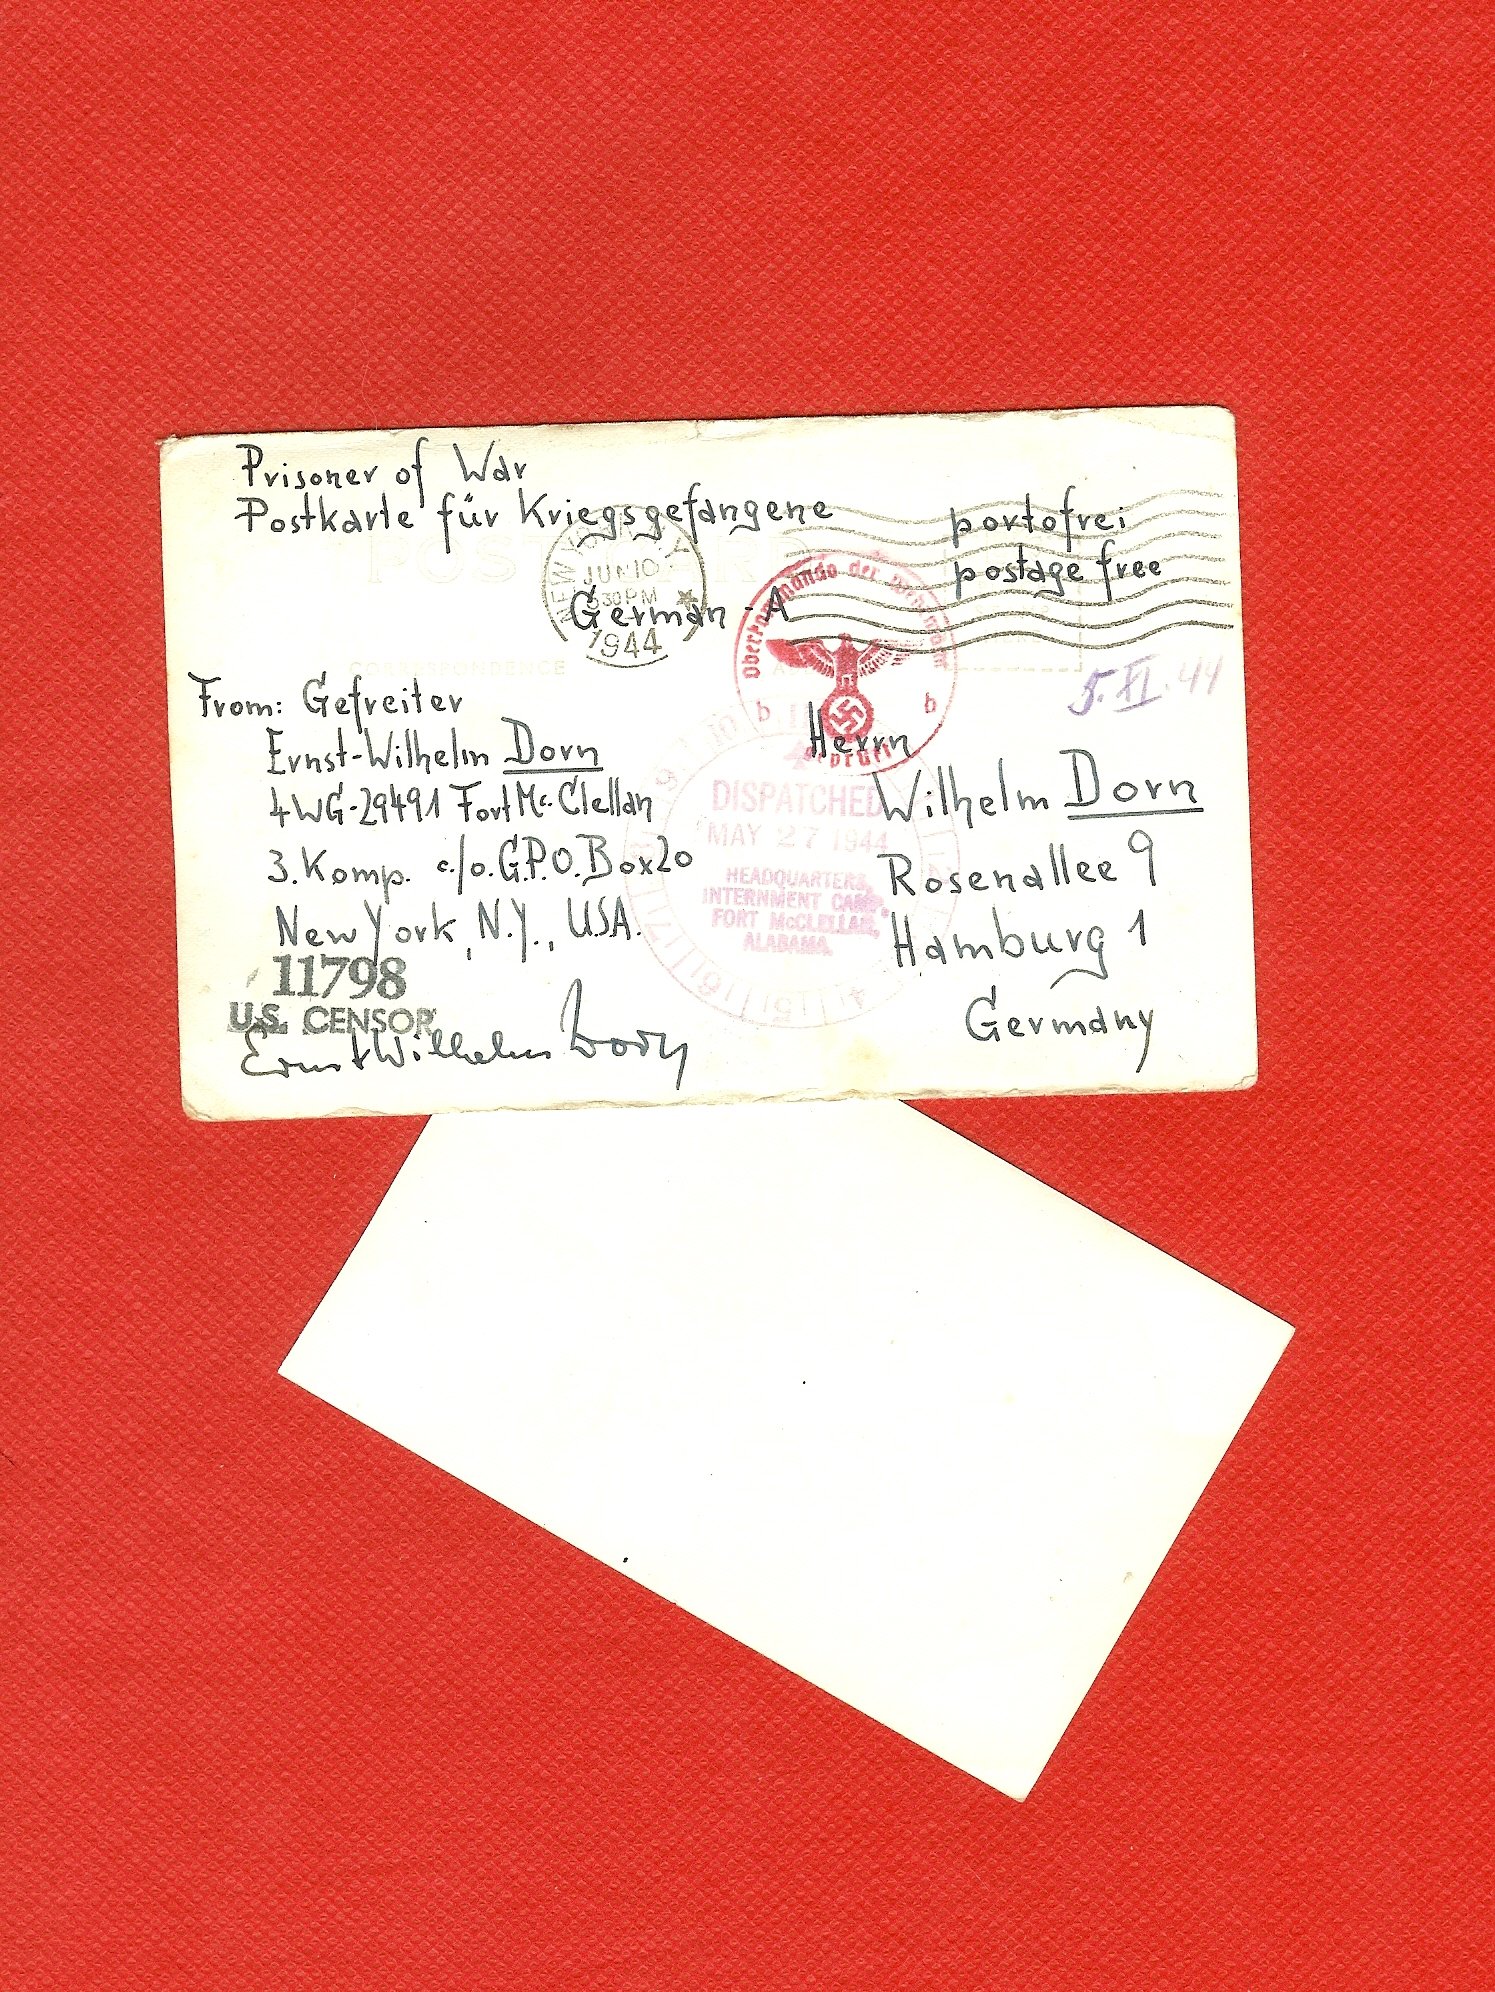 Prisoner of War
Postkarte für Kriegsgefangene
portofrei
postage free
POST CARD
NEW YORK, N.Y.
JUN 10
5 30 PM
1944
German-A
Oberkommando der Wehrmacht
b b
geprüft
CORRESPONDENCE
5. XI. 44
From: Gefreiter
Ernst-Wilhelm Dorn
4WG-29491 Fort Mc. Clellan
3. Komp. c./o. G.P.O. Box 20
New York, N.Y., U.S.A.
11798
U.S. CENSOR
Ernst Wilhelm Dorn
DISPATCHED
MAY 27 1944
HEADQUARTERS,
INTERNMENT CAMP,
FORT McCLELLAN,
ALABAMA.
Herrn
Wilhelm Dorn
Rosenallee 9
Hamburg 1
Germany